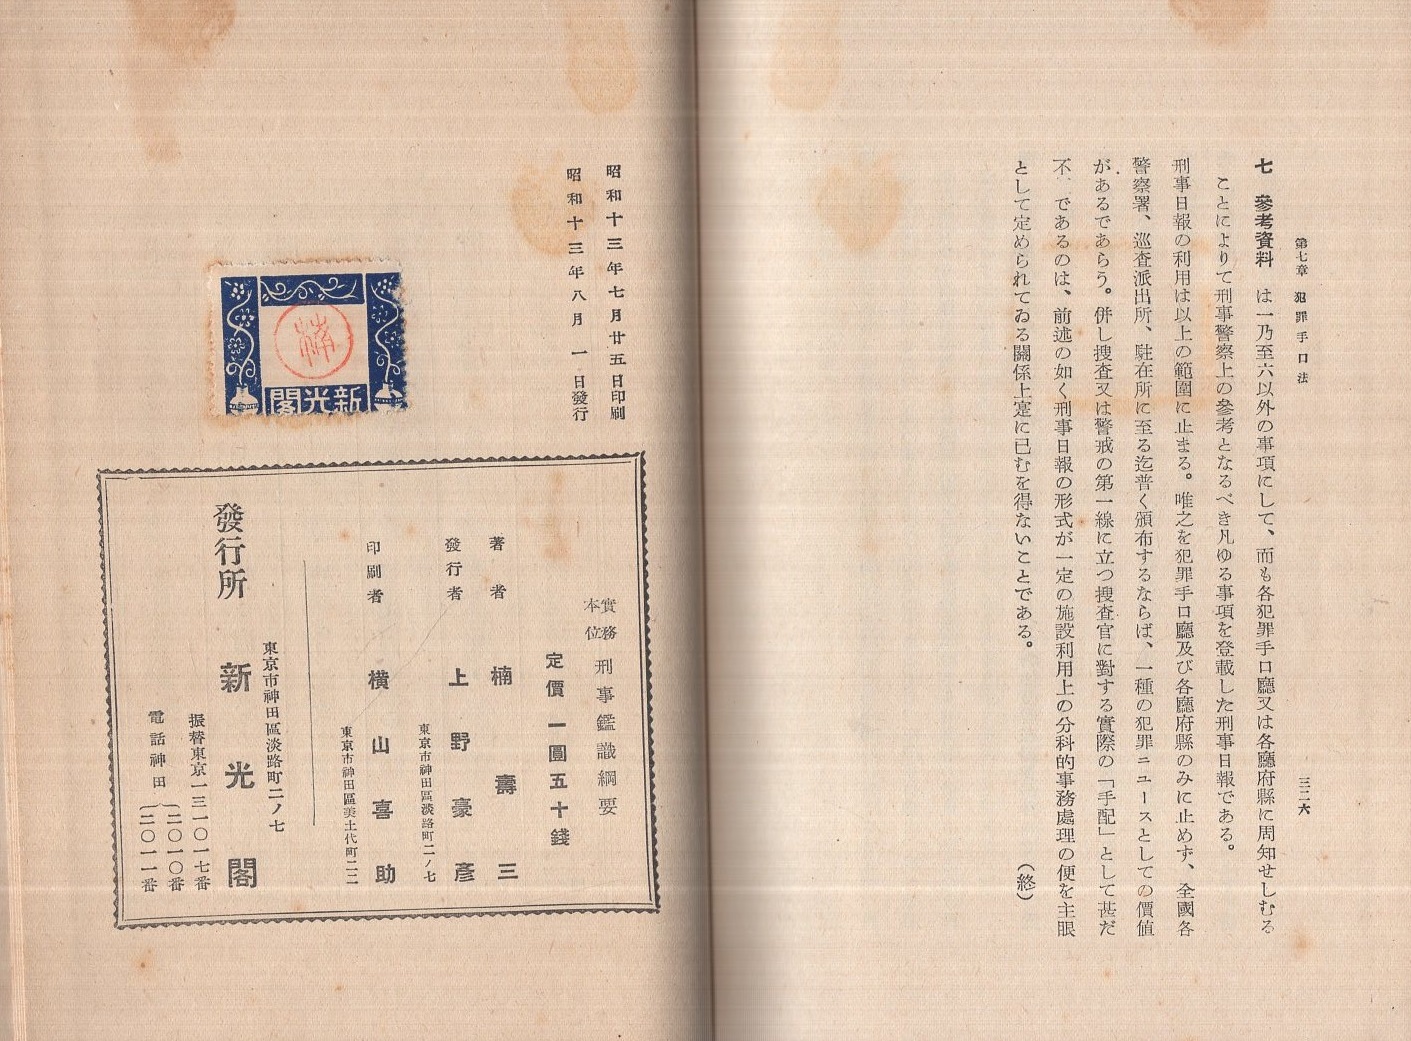 第七章 犯罪手口法
三二六
七 參考資料 は一乃至六以外の事項にして、而も各犯罪手口廳又は各廳府縣に周知せしむる
ことによりて刑事警察上の參考となるべき凡ゆる事項を登載した刑事日報である。
刑事日報の利用は以上の範圍に止まる。唯之を犯罪手口廳及び各廳府縣のみに止めず、全國各
警察署、巡査派出所、駐在所に至る迄普く頒布するならば、一種の犯罪ニュースとしての價値
があるであらう。併し搜査又は警戒の第一線に立つ搜査官に對する實際の「手配」として甚だ
不、であるのは、前述の如く刑事日報の形式が一定の施設利用上の分科的事務處理の便を主眼
として定められてゐる關係上寔に已むを得ないことである。
(終)
昭和十三年七月廿五日印刷
昭和十三年八月一日發行
新光閣
楠
實務本位 刑事鑑識綱要
定價一圓五十錢
著者 楠壽三
發行者 上野豪彥
東京市神田區淡路町二ノ七
印刷者 橫山喜助
東京市神田區美土代町二二
東京市神田區淡路町二ノ七
發行所 新光閣
振替東京一三一〇一七番
電話神田(二〇一〇番
(二〇一一番